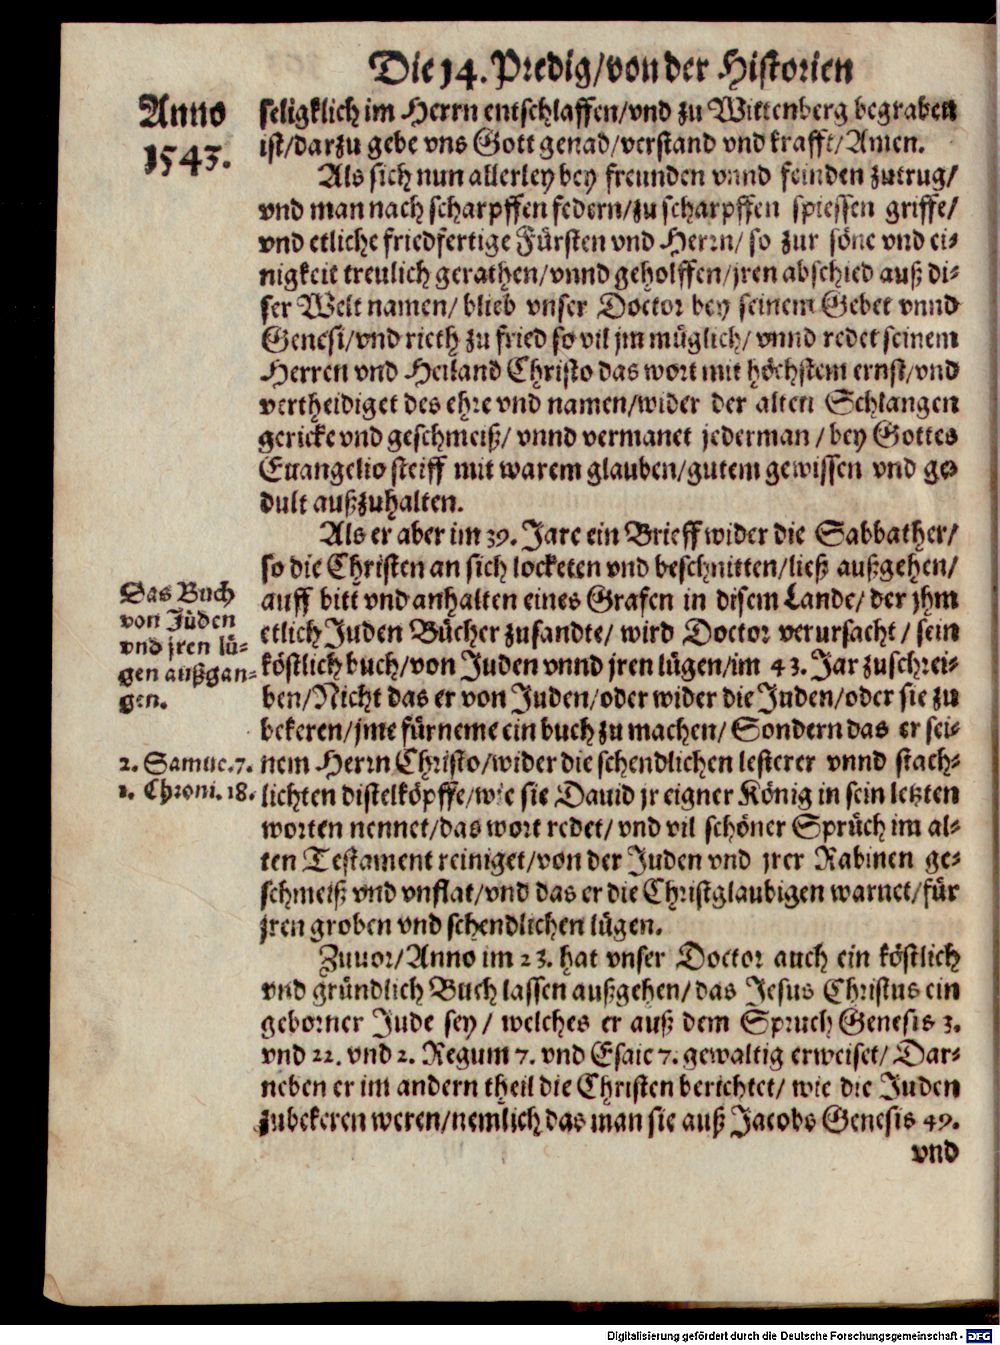 Die 14. Predig/von der Historien
Anno
1543.
seligklich im Herrn entschlaffen/vnd zu Wittenberg begraben
ist/darzu gebe vns Gott genad/verstand vnd krafft/Amen.
Als sich nun allerley bey freunden vnnd feinden zutrug/
vnd man nach scharpffen federn/zu scharpffen spiessen griffe/
vnd etliche friedfertige Fürsten vnd Herrn/ so zur söne vnd ei-
nigkeit treulich gerathen/vnnd geholffen/jren abschied auß di-
ser Welt namen/ blieb vnser Doctor bey seinem Gebet vnnd
Genesi/vnd rieth zu fried so vil jm müglich/ vnnd redet seinem
Herren vnd Heiland Christo das wort mit höchstem ernst/vnd
vertheidiget des ehre vnd namen/wider der alten Schlangen
gericke vnd geschmeiß/ vnnd vermanet jederman /bey Gottes
Euangelio steiff mit warem glauben/gutem gewissen vnd ge
dult außzuhalten.
Als er aber im 39. Jare ein Brieff wider die Sabbather/
so die Christen an sich locketen vnd beschnitten/ließ außgehen/
auff bitt vnd anhalten eines Grafen in disem Lande/ der jhm
etlich Juden Bücher zusandte/ wird Doctor verursacht / sein
köstlich buch/von Juden vnnd jren lügen/im 43. Jar zuschrei-
ben/Nicht das er von Juden/oder wider die Juden/oder sie zu
bekeren/jme fürneme ein buch zu machen/ Sondern das er sei-
nem Herrn Christo/wider die schendlichen lesterer vnnd stach-
lichten distelköpffe/wie sie Dauid jr eigner König in sein letzten
worten nennet/das wort redet/ vnd vil schöner Sprüch im al-
ten Testament reiniget/von der Juden vnd jrer Rabinen ge-
schmeiß vnd vnflat/vnd das er die Christglaubigen warnet/für
jren groben vnd schendlichen lügen.
Das Buch
von Jüden
vnd jren lü-
gen außgan-
gen.
2. Samue.7.
1. Chroni. 18.
Zuuor/Anno im 23. hat vnser Doctor auch ein köstlich
vnd gründlich Buch lassen außgehen/das Jesus Christus ein
geborner Jude sey/ welches er auß dem Spruch Genesis 3.
vnd 22. vnd 2. Regum 7. vnd Esaie 7. gewaltig erweiset/ Dar-
neben er im andern theil die Christen berichtet/ wie die Juden
zubekeren weren/nemlich das man sie auß Jacobs Genesis 49.
vnd
Digitalisierung gefördert durch die Deutsche Forschungsgemeinschaft - DFG